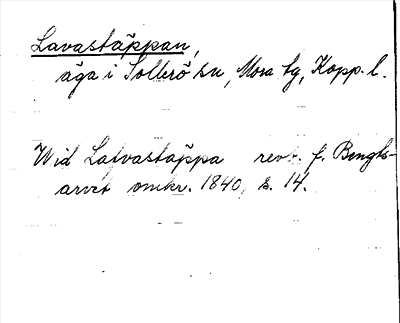 Lavastäppan,
äga i Sollerö sn, Mora tg, Kopp. l.
Wid Lafvastäppa rev. f. Bengts-
arvet omkr. 1840, s. 14.